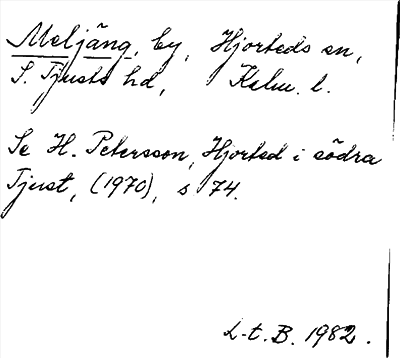 Meljäng, by, Hjorteds sn,
S. Tjusts hd, Kalm. l.
Se H. Petersson, Hjorted i södra
Tjust, (1970), s 74.
L-t. B. 1982.